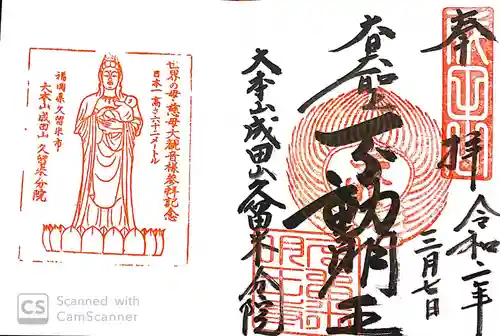 奉拝
令和二年
三月七日
大聖不動明王
大本山成田山久留米分院
世界の母・慈母大観音様参拝記念
日本一高さ六十二メートル
福岡県久留米市
大本山成田山 久留米分院
CS Scanned with
CamScanner